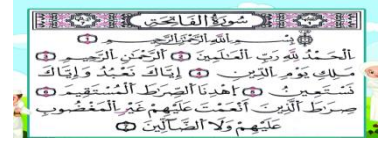 سُورَةُ الْفَاتِحَةِ
بِسْمِ اللَّهِ الرَّحْمَٰنِ الرَّحِيمِ ١
الْحَمْدُ لِلَّهِ رَبِّ الْعَالَمِينَ ٢ الرَّحْمَٰنِ الرَّحِيمِ ٣
مَالِكِ يَوْمِ الدِّينِ ٤ إِيَّاكَ نَعْبُدُ وَإِيَّاكَ
نَسْتَعِينُ ٥ اهْدِنَا الصِّرَاطَ الْمُسْتَقِيمَ ٦
صِرَاطَ الَّذِينَ أَنْعَمْتَ عَلَيْهِمْ غَيْرِ الْمَغْضُوبِ
عَلَيْهِمْ وَلَا الضَّالِّينَ ٧